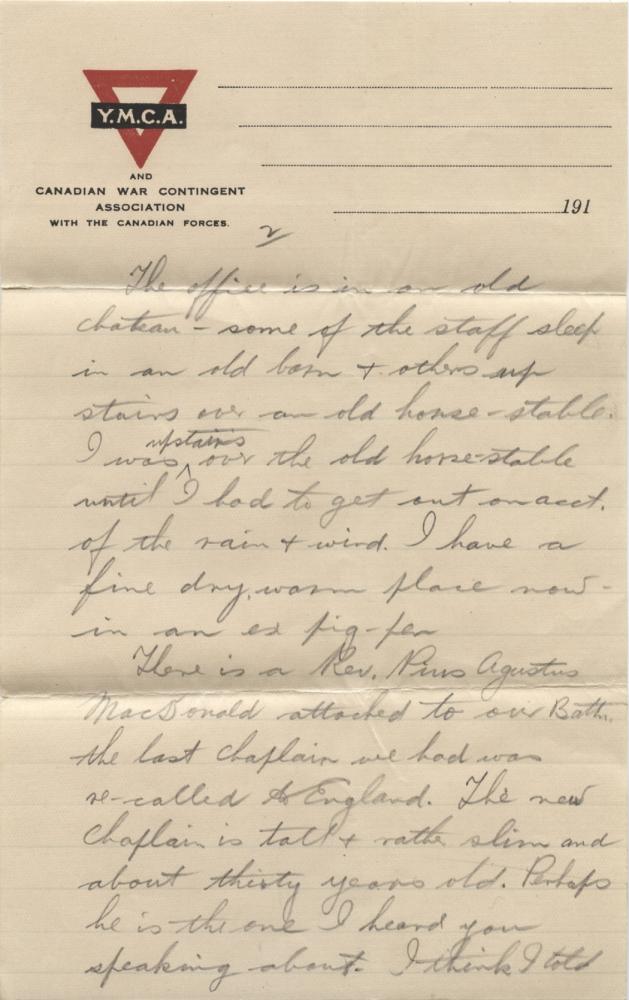 Y.M.C.A.
AND
CANADIAN WAR CONTINGENT
ASSOCIATION
WITH THE CANADIAN FORCES.
191
2
The office is in an old
chateau - some of the staff sleep
in an old barn + others up
stairs over an old horse-stable.
upstairs
I was ^ over the old horse-stable
until I had to get out on acct.
of the rain + wind. I have a
fine dry, warm place now -
in an ex pig-pen
There is a Rev. Pius Agustus
MacDonald attached to our Battn.
the last chaplain we had was
re-called to England. The new
Chaplain is tall + rather slim and
about thirty years old. Perhaps
he is the one I heard you
speaking about. I think I told